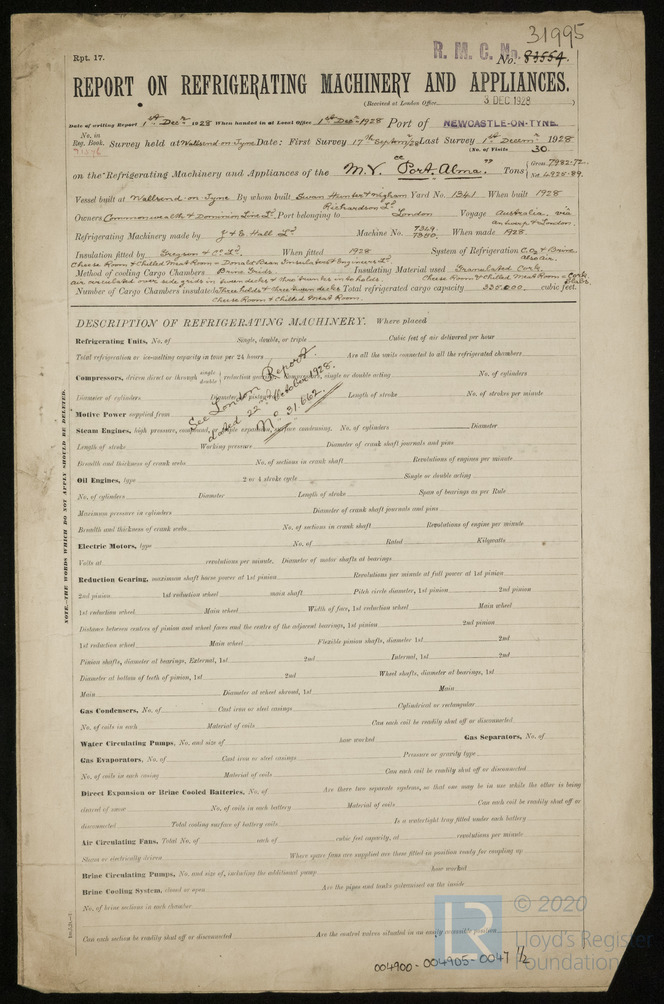 31995
Rpt. 17.
R. M. C. No. 83554.
REPORT ON REFRIGERATING MACHINERY AND APPLIANCES.
(Received at London Office 3 DEC 1928)
Date of writing Report 1st Decr 1928 When handed in at Local Office 1st Decr 1928 Port of NEWCASTLE-ON-TYNE.
No. in Reg. Book. Survey held at Wallsend on Tyne Date: First Survey 17th Septemr/28 Last Survey 1st Decemr 1928
(No. of Visits 30.
on the Refrigerating Machinery and Appliances of the M.V. "Port Alma" Tons { Gross 7982.72. Net 4928.89.
Vessel built at Wallsend on Tyne By whom built Swan Hunter & Wigham Richardson Ld Yard No. 1341 When built 1928
Owners Commonwealth & Dominion Line Ld Port belonging to London Voyage Australia via Antwerp & London.
Refrigerating Machinery made by J & E. Hall Ld Machine No. 7369. 7370. When made 1928
Insulation fitted by Gregson & Co Ld When fitted 1928 System of Refrigeration CO2 & Brine Also Air.
Cheese Room & Chilled Meat Room = Donald Bean Insulators & Engineers Ld
Method of cooling Cargo Chambers Brine Grids. Insulating Material used Granulated Cork.
air circulated over side grids in tween decks & thro trunks in holds Cheese Room & Chilled Meat Room = Cork slabs.
Number of Cargo Chambers insulated Three holds & three tween decks Total refrigerated cargo capacity 335.000 cubic feet.
Cheese Room & Chilled Meat Room.
DESCRIPTION OF REFRIGERATING MACHINERY. Where placed
Refrigerating Units, No. of Single, double, or triple Cubic feet of air delivered per hour
Total refrigeration or ice-melting capacity in tons per 24 hours Are all the units connected to all the refrigerated chambers
Compressors, driven direct or through single double reduction gearing. Compressors, single or double acting No. of cylinders
Diameter of cylinders Diameter of piston rod Length of stroke No. of strokes per minute
Motive Power supplied from
See London Report
dated 22nd October 1928.
No. 31.662.
Steam Engines, high pressure, compound, triple expansion, surface condensing, No. of cylinders Diameter
Length of stroke Working pressure Diameter of crank shaft journals and pins
Breadth and thickness of crank webs No. of sections in crank shaft Revolutions of engines per minute
Oil Engines, type 2 to 4 stroke cycle Single or double acting
No. of cylinders Diameter Length of stroke Span of bearings as per Rule
Maximum pressure in cylinders Diameter of crank shaft journals and pins
Breadth and thickness of crank webs No. of sections in crank shaft Revolutions of engine per minute
Electric Motors, type No. of Rated Kilowatts
Volts at revolutions per minute. Diameter of motor shafts at bearings
Reduction Gearing, maximum shaft horse power at 1st pinion Revolutions per minute at full power at 1st pinion
2nd pinion 1st reduction wheel main shaft Pitch circle diameter, 1st pinion 2nd pinion
1st reduction wheel Main wheel Width of face, 1st reduction wheel Main wheel
Distance between centres of pinion and wheel faces and the centre of the adjacent bearings, 1st pinion 2nd pinion
1st reduction wheel Main wheel Flexible pinion shafts, diameter 1st 2nd
Pinion shafts, diameter at bearings, External, 1st 2nd Internal, 1st 2nd
Diameter at bottom of teeth of pinion, 1st 2nd Wheel shafts, diameter at bearings, 1st
Main Diameter at wheel shroud, 1st Main
Gas Condensers, No. of Cast iron or steel casings Cylindrical or rectangular
No. of coils in each Material of coils Can each coil be readily shut off or disconnected
Water Circulating Pumps, No. and size of how worked Gas Separators, No. of
Gas Evaporators, No. of Cast iron or steel casings Pressure or gravity type
No. of coils in each casing Material of coils Can each coil be readily shut off or disconnected
Direct Expansion or Brine Cooled Batteries, No. of Are there two separate systems, so that one may be in use while the other is being
cleared of snow No. of coils in each battery Material of coils Can each coil be readily shut off or
disconnected Total cooling surface of battery coils Is a watertight tray fitted under each battery
Air Circulating Fans, Total No. of each of cubic feet capacity, at revolutions per minute
Steam or electrically driven Where spare fans are supplied are these fitted in position ready for coupling up
Brine Circulating Pumps, No. and size of, including the additional pump how worked
Brine Cooling System, closed or open Are the pipes and tanks galvanised on the inside
No. of brine sections in each chamber
Can each section be readily shut off or disconnected Are the control valves situated in an easily accessible position
NOTE.—THE WORDS WHICH DO NOT APPLY SHOULD BE DELETED.
LR
© 2020
Lloyd's Register
Foundation
004900 - 004905 - 0047 1/2